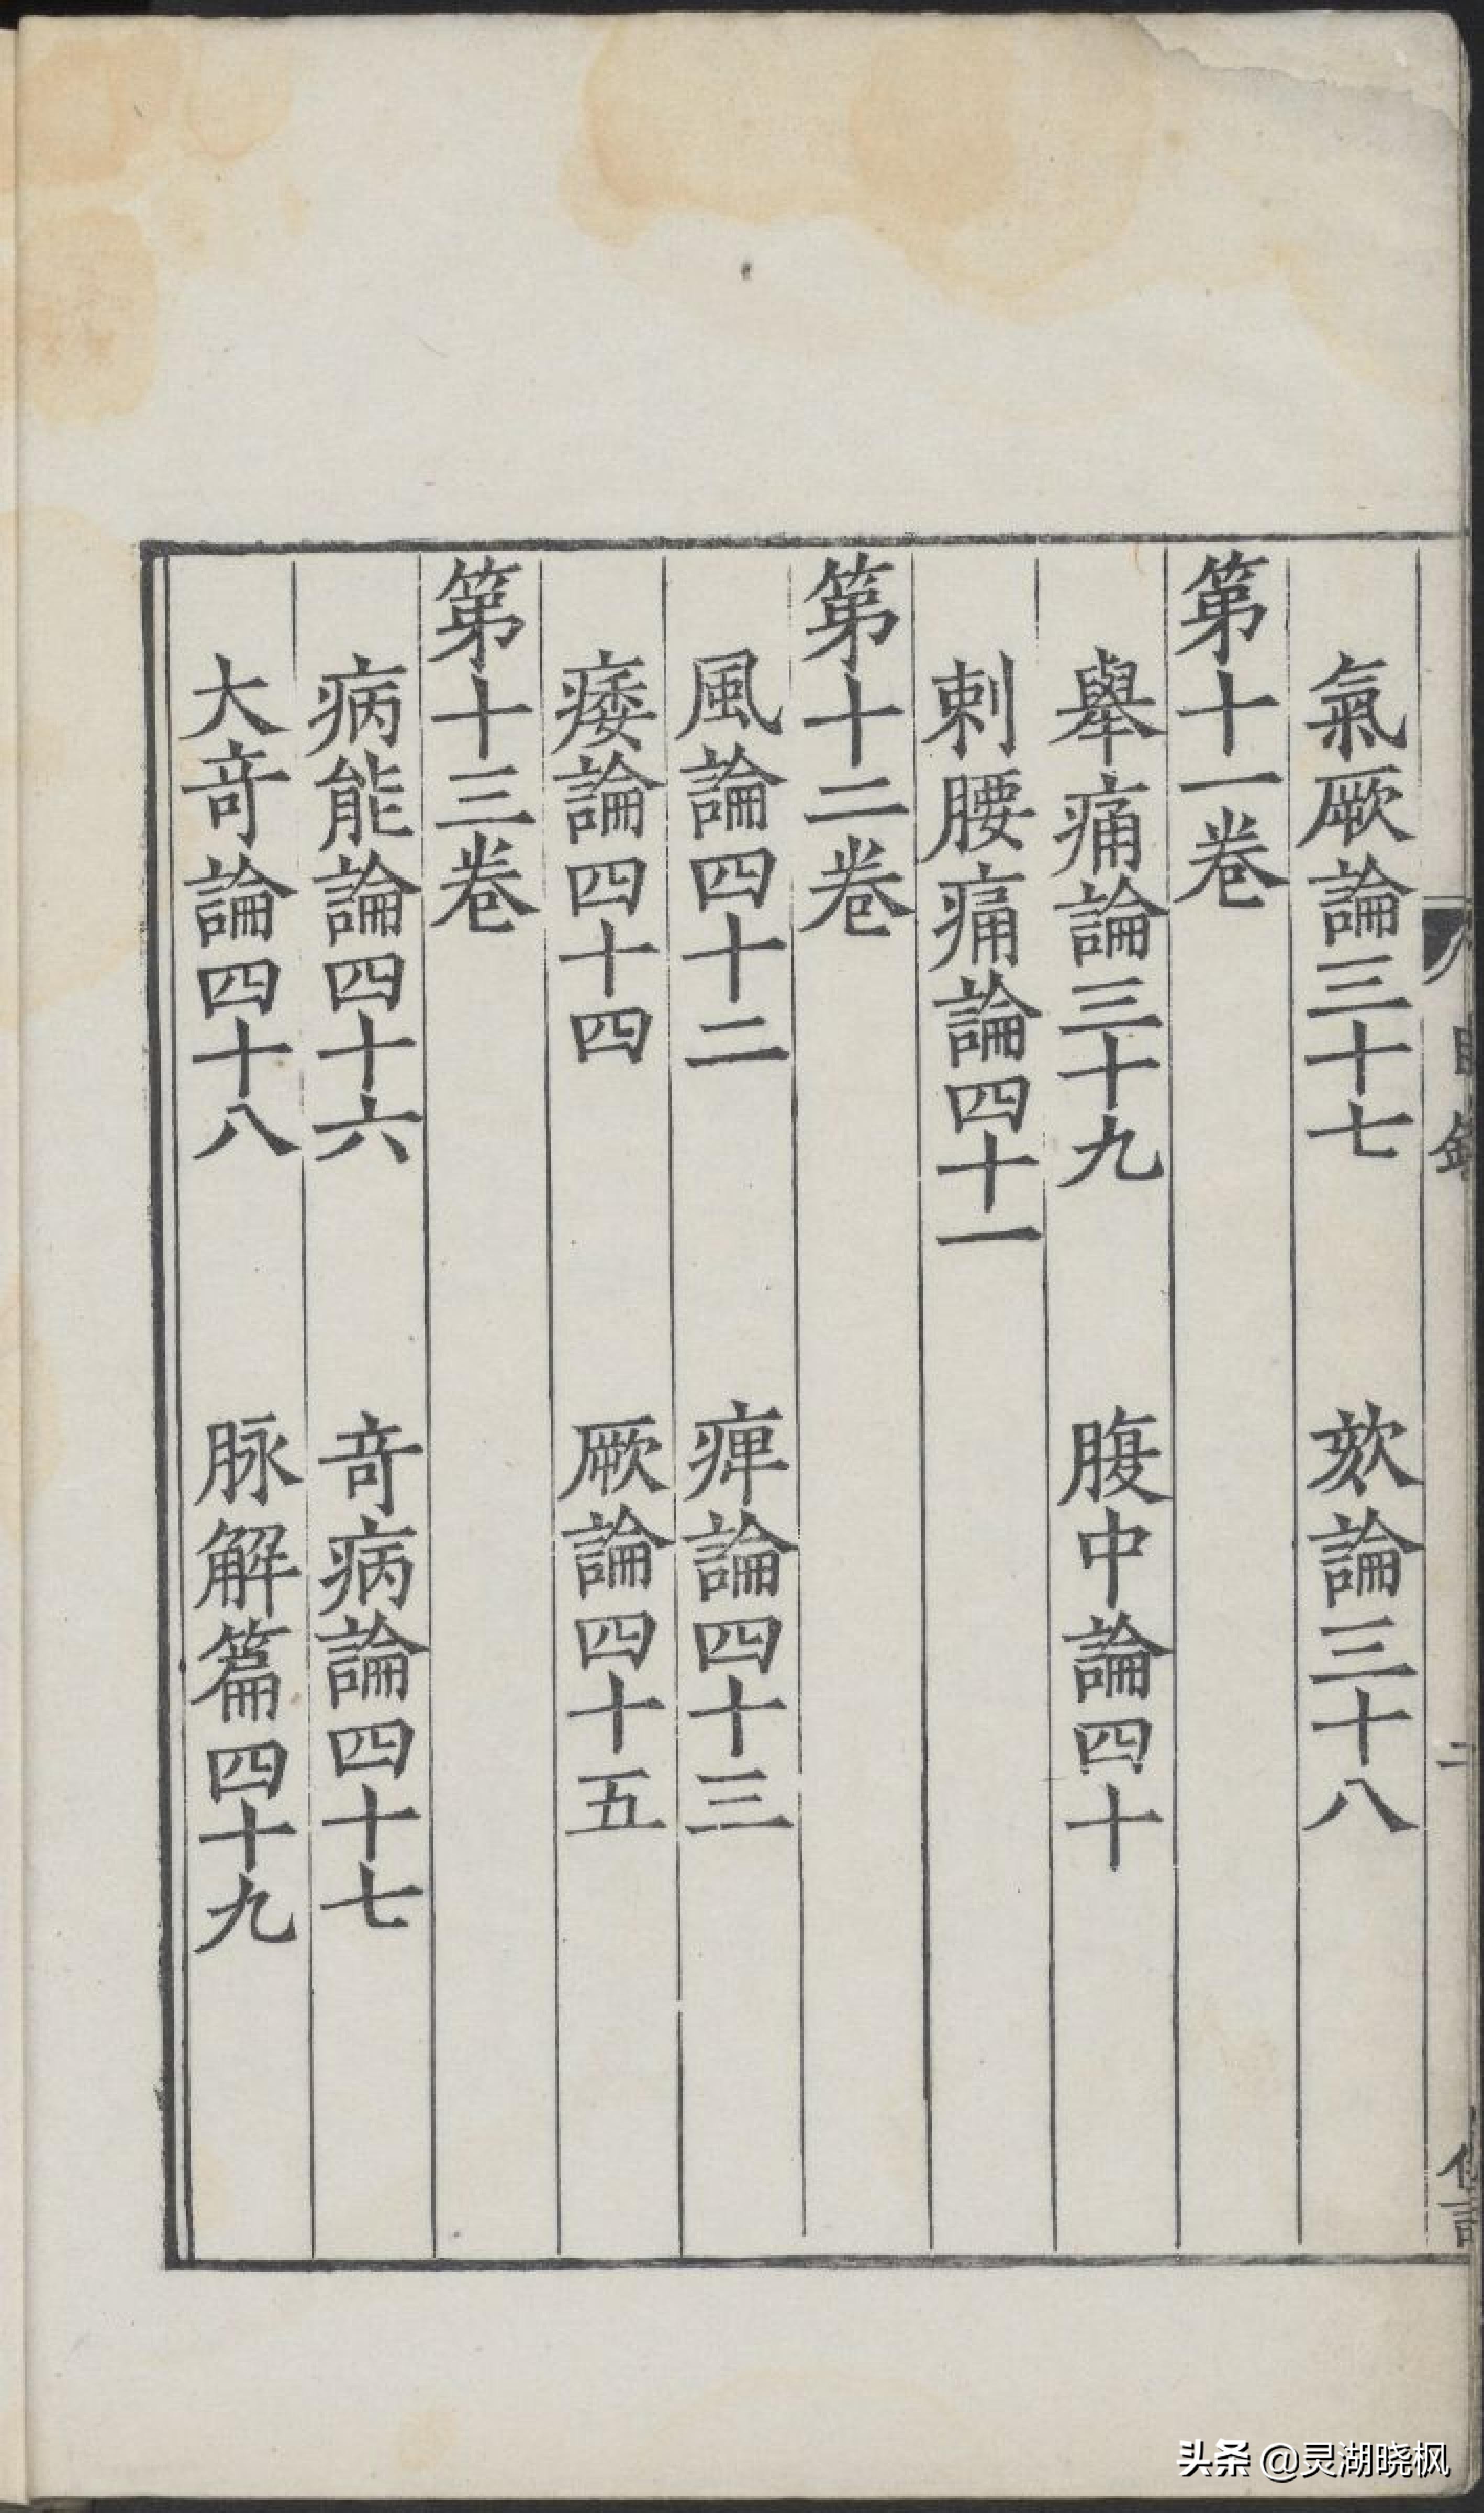 氣厥論三十七 欬論三十八
第十一卷
舉痛論三十九 腹中論四十
刺腰痛論四十一
第十二卷
風論四十二 痺論四十三
痿論四十四 厥論四十五
第十三卷
病能論四十六 竒病論四十七
大竒論四十八 脉解篇四十九
头条 @灵湖晓枫